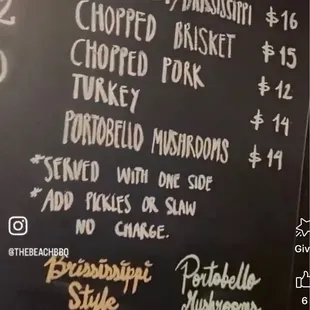 Brississippi $16
Chopped Brisket $15
Chopped Pork $12
Turkey $14
Portobello Mushrooms $14
*Served with one side
*Add pickles or slaw
no charge.
@THEBEACHBBQ
Giv
6
Brississippi Style
Portobello Mushrooms